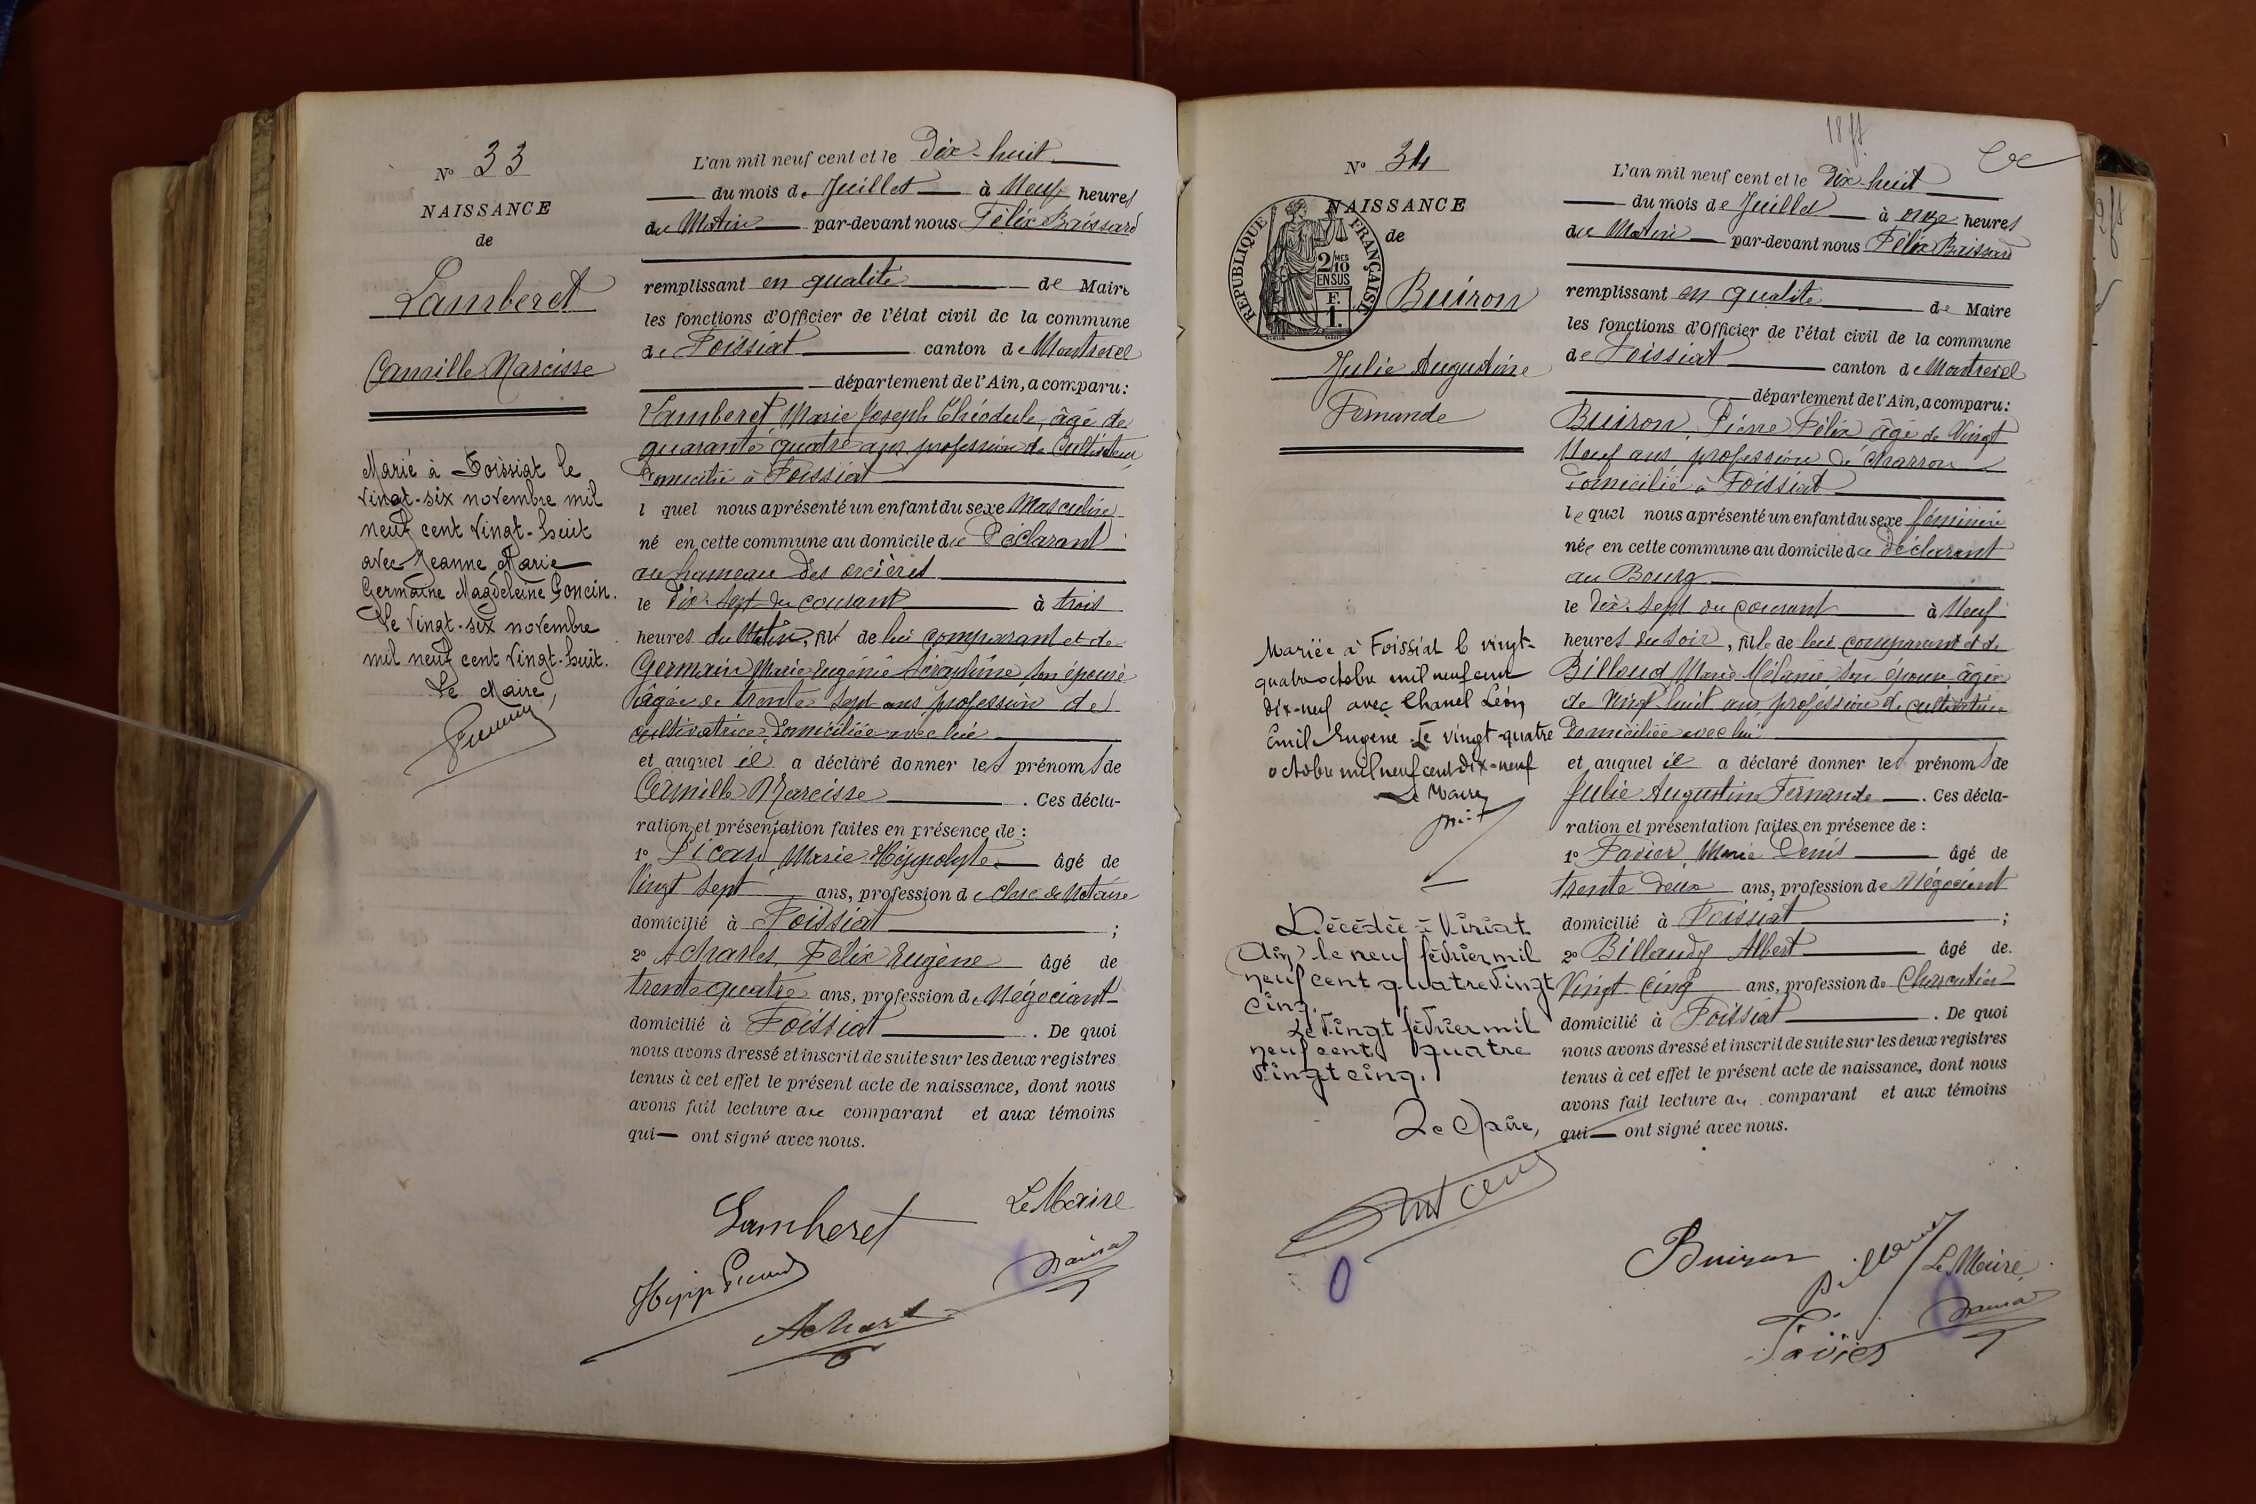 Nº 33
NAISSANCE
de
Lamberet
Camille Narcisse
Marié à Foissiat le
vingt-six novembre mil
neuf cent vingt-huit
avec Jeanne Marie
Germaine Magdeleine Goncin.
Le vingt-six novembre
mil neuf cent vingt-huit.
Le Maire,
L'an mil neuf cent et le Dix-huit
du mois de Juillet à Neuf heures
du Matin par-devant nous Félix Baissard
remplissant en qualité de Maire
les fonctions d'Officier de l'état civil de la commune
de Foissiat canton de Montrevel
département de l'Ain, a comparu:
Lamberet Marie Joseph Théodule, âgé de
quarante quatre ans profession de Cultivateur
domicilié à Foissiat
l quel nous a présenté un enfant du sexe Masculin
né en cette commune au domicile du Déclarant
au hameau des orcières
le Dix-sept du courant à trois
heures du Matin, fils de lui comparant et de
Germain Marie Eugénie Séraphine son épouse
âgée de trente sept ans profession de
cultivatrice domiciliée avec lui
et auquel il a déclaré donner les prénoms de
Camille Narcisse . Ces décla-
ration et présentation faites en présence de :
1º Picard Marie Hippolyte âgé de
Vingt sept ans, profession de clerc de Notaire
domicilié à Foissiat ;
2º Acharles Félix Eugène âgé de
trente quatre ans, profession de Négociant
domicilié à Foissiat . De quoi
nous avons dressé et inscrit de suite sur les deux registres
tenus à cet effet le présent acte de naissance, dont nous
avons fait lecture au comparant et aux témoins
qui ont signé avec nous.
Lamberet
Le Maire
Hipp Picard
Achart
18 ff
Nº 34
NAISSANCE
de
REPUBLIQUE FRANÇAISE
2/10 MES
EN SUS
F.
1.
Buiron
Julie Augustine
Fernande
Mariée à Foissiat le vingt-
quatre octobre mil neuf cent
dix-neuf avec Chanel Léon
Emil Eugène. Le vingt-quatre
octobre mil neuf cent dix-neuf
Le Maire
Décédée à Viriat
(Ain) le neuf février mil
neuf cent quatre vingt
cinq.
Le vingt février mil
neuf cent quatre
vingt cinq.
Le Maire,
L'an mil neuf cent et le Dix-huit
du mois de Juillet à onze heures
du Matin par-devant nous Félix Baissard
remplissant en qualité de Maire
les fonctions d'Officier de l'état civil de la commune
de Foissiat canton de Montrevel
département de l'Ain, a comparu:
Buiron, Pierre Félix âgé de Vingt
Neuf ans profession de charron
domicilié à Foissiat
lequel nous a présenté un enfant du sexe féminin
née en cette commune au domicile du déclarant
au Bourg
le Dix-sept du courant à Neuf
heures du soir, fille de lui comparant et de
Billoud Marie Mélanie son épouse âgée
de Vingt huit ans profession de cultivatrice
domiciliée avec lui
et auquel il a déclaré donner les prénoms de
Julie Augustine Fernande . Ces décla-
ration et présentation faites en présence de :
1º Favier, Marie Denis âgé de
trente deux ans, profession de Négociant
domicilié à Foissiat ;
2º Billaudy Albert âgé de
Vingt cinq ans, profession de Charcutier
domicilié à Foissiat . De quoi
nous avons dressé et inscrit de suite sur les deux registres
tenus à cet effet le présent acte de naissance, dont nous
avons fait lecture au comparant et aux témoins
qui ont signé avec nous.
Buiron
Le Maire,
Favier